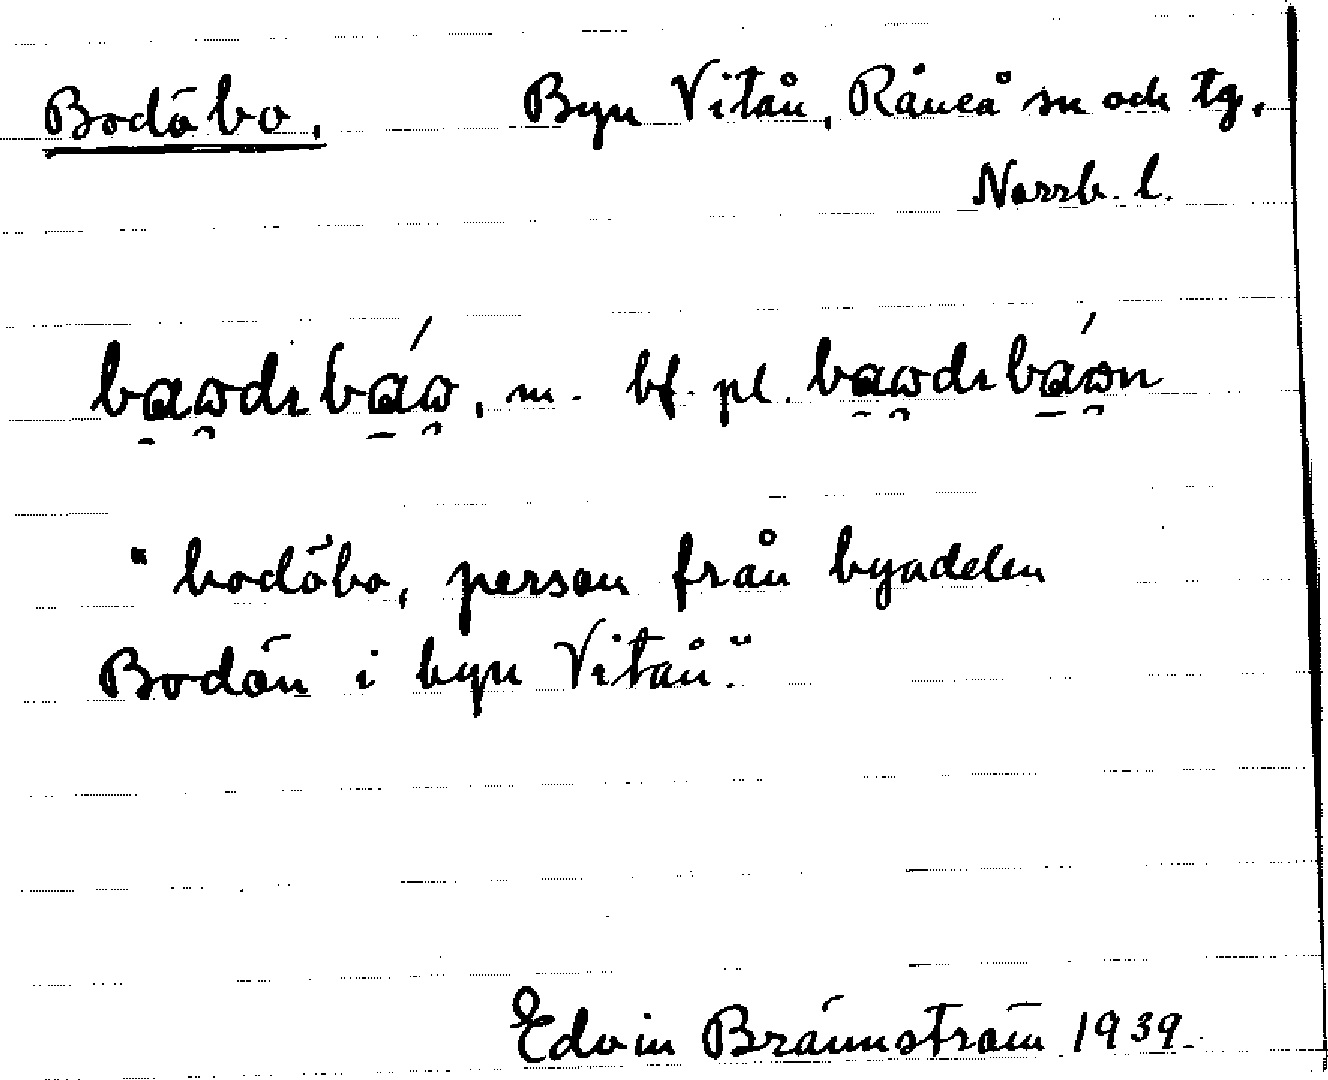 Bodöbo. Byn Vitån, Råneå sn och tg.
Norrb. l.
bawdɩbáw, m. bf. pl. bawdɩbáwn
"bodöbo, person från byadelen
Bodön i byn Vitån."
Edvin Brännström 1939.